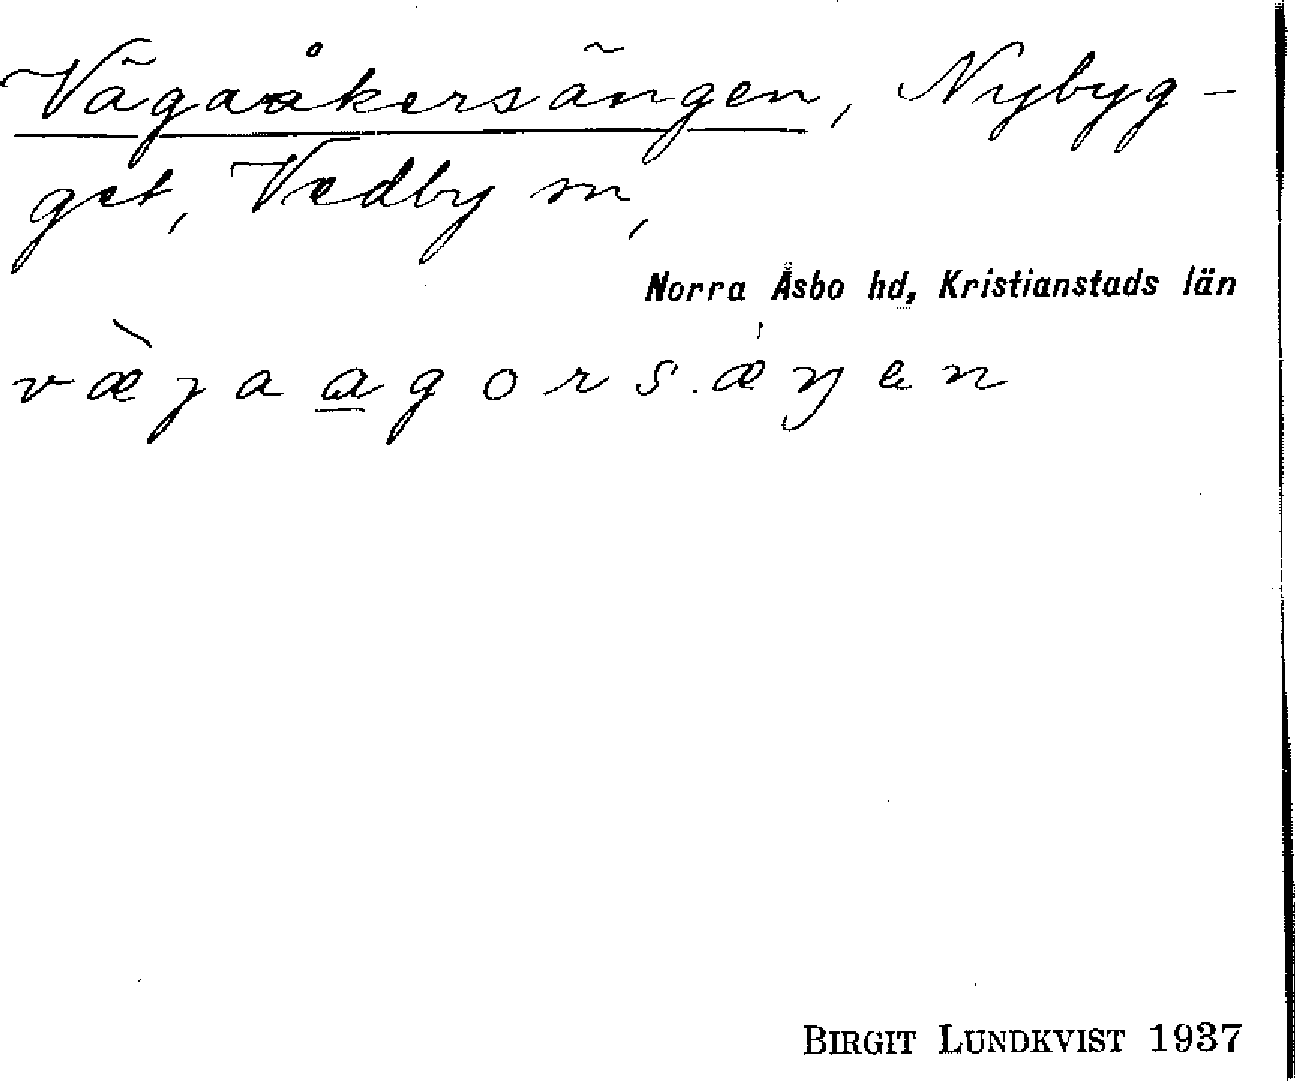 Vägaåkersängen, Nybyg-
get, Vedby sn,
Norra Åsbo hd, Kristianstads län
væ̀ȷaa̲gors.æ̍ŋen
BIRGIT LUNDKVIST 1937